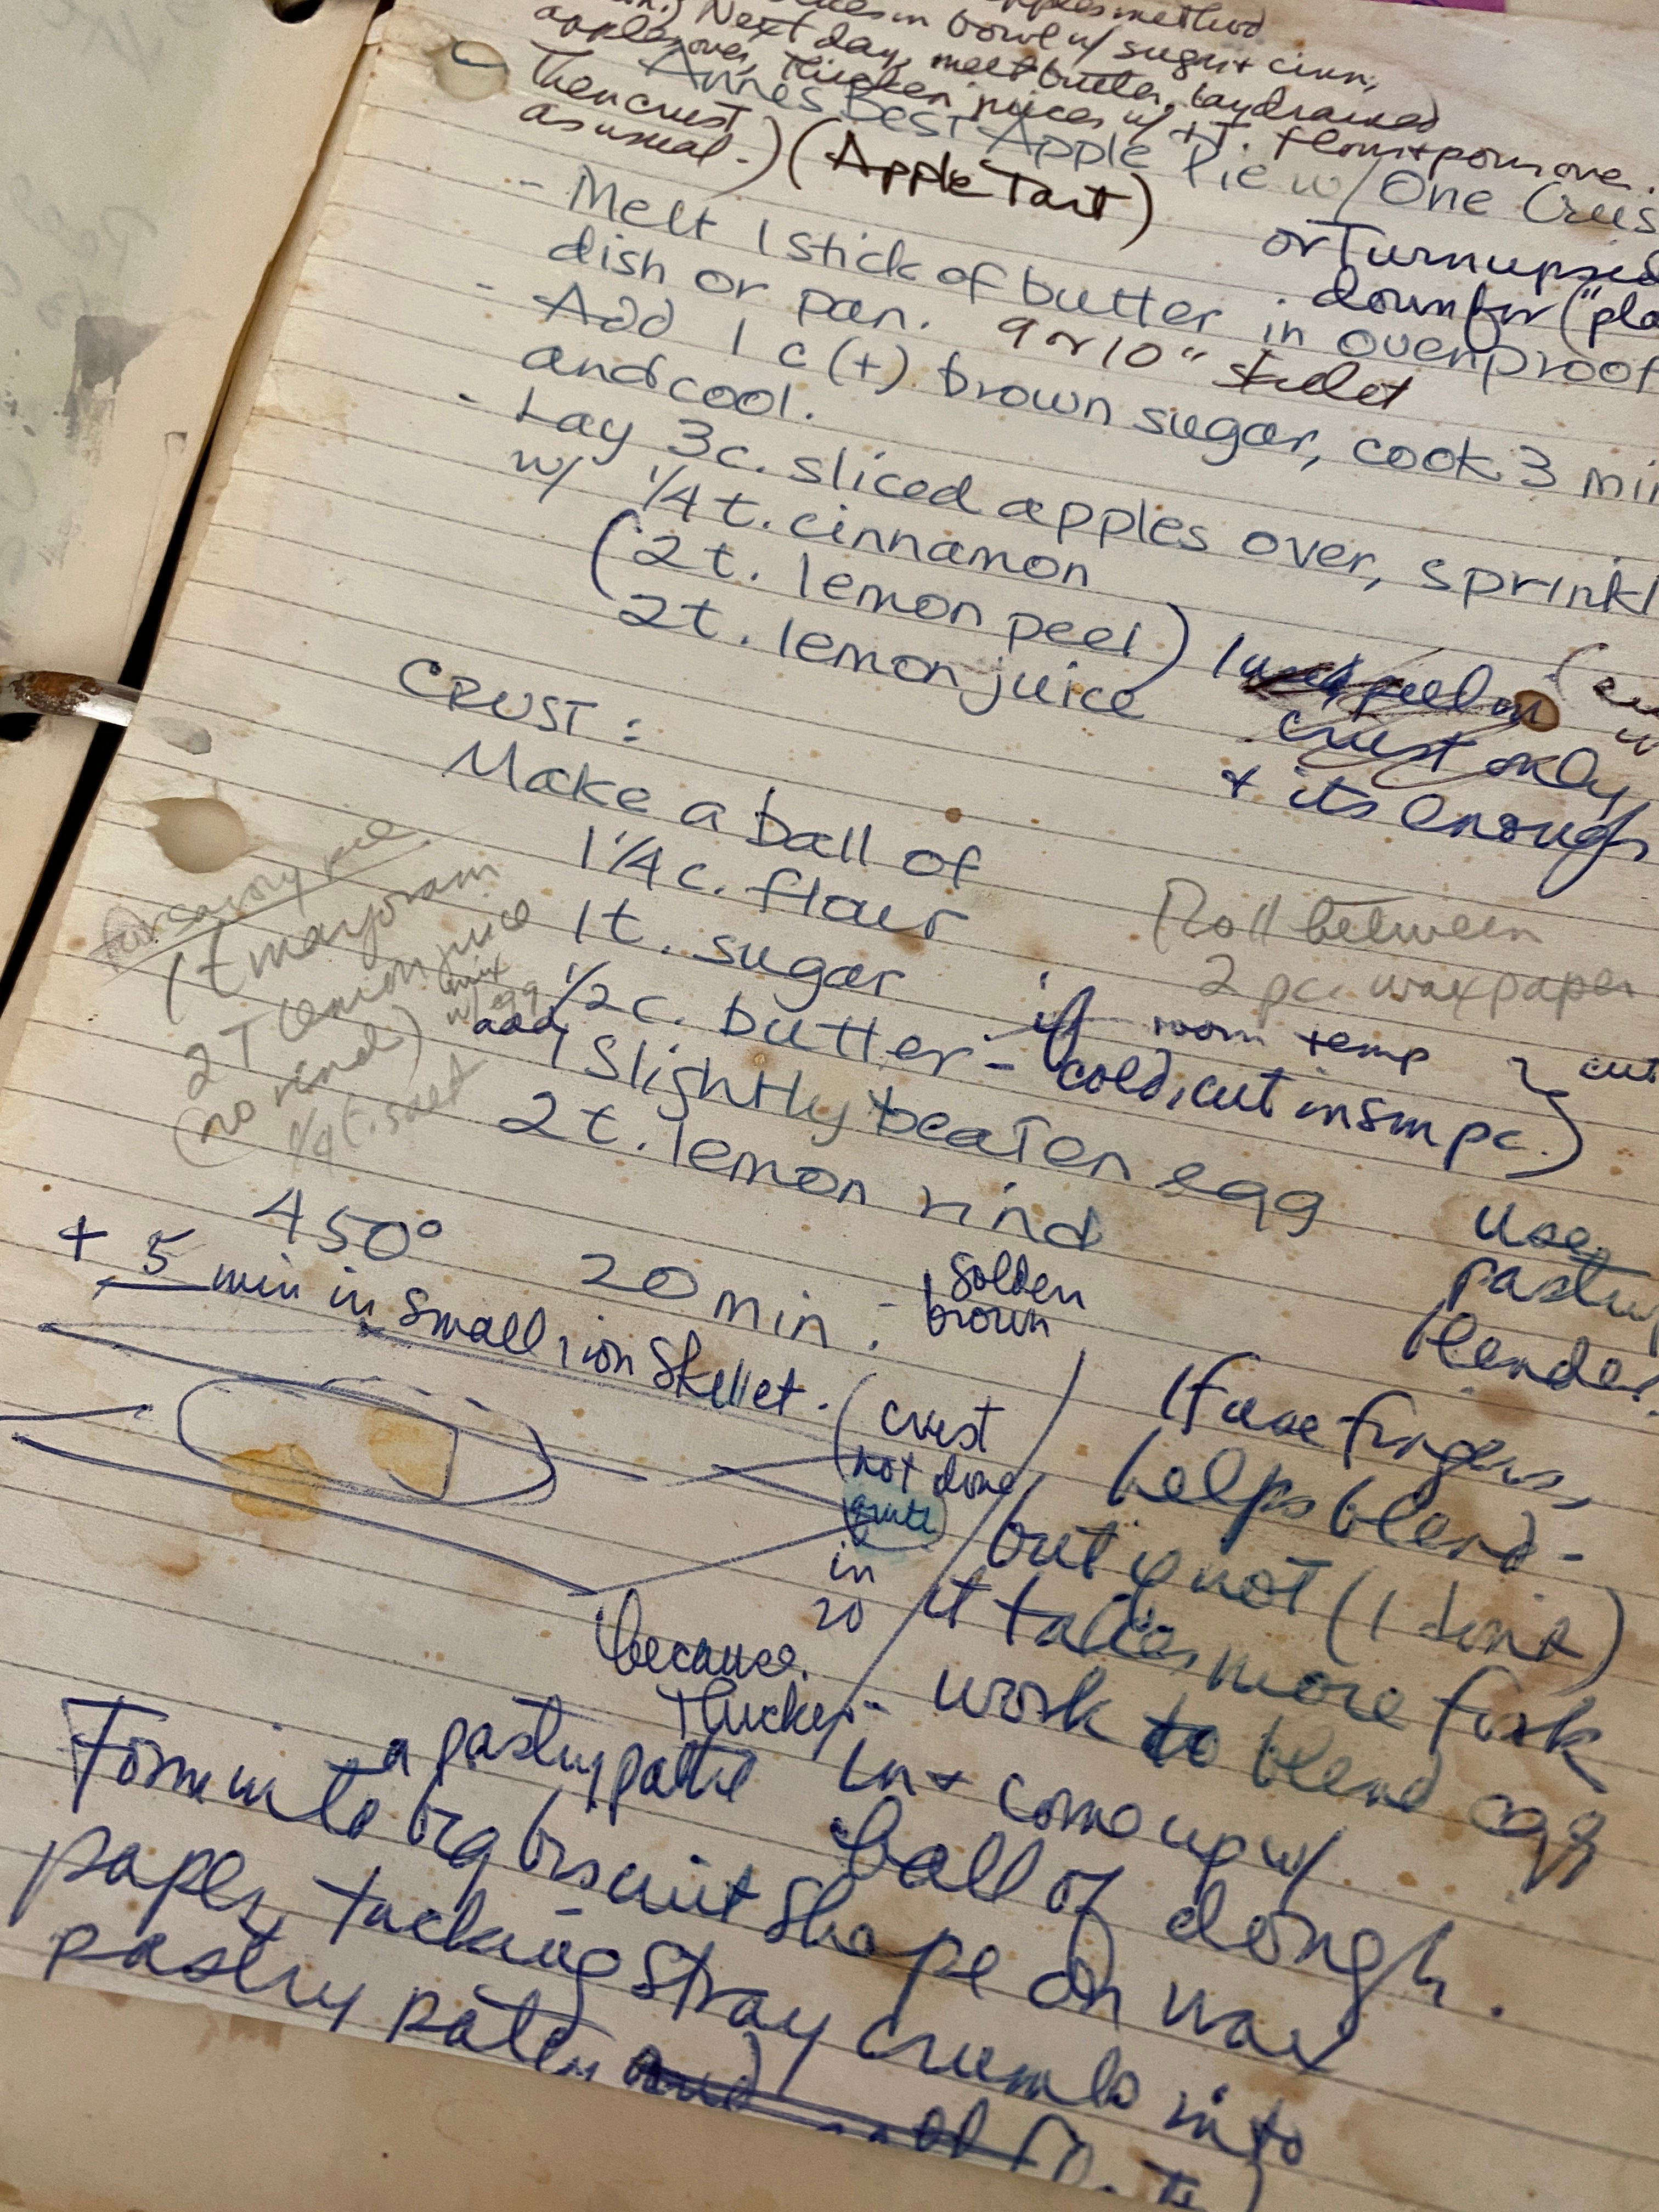 apples method
in bowl w/ sugar + cinn,
Next day, melt butter, lay drained
apples over, thicken juices w/ 1 T. flour + pour over.
Then crust
as usual.)
Anne's Best Apple Pie w/ One Crus
(Apple Tart)
or Turn upsid
down for ("pla
- Melt 1 stick of butter in ovenproof
dish or pan. 9 or 10" skillet
- Add 1 c (+) brown sugar, cook 3 min
and cool.
- Lay 3 c. sliced apples over, sprinkl
w/ 1/4 t. cinnamon
(2 t. lemon peel)
2 t. lemon juice
I used peel on
crust only
+ its enough
CRUST:
Make a ball of
1 1/4 c. flour
1 t. sugar
1/2 c. butter - if room temp
cold, cut in sm pc.)
cut
add 1 slightly beaten egg
2 t. lemon rind
Roll between
2 pc. wax paper
for savory pie
1 t marjoram
2 T lemon juice
(no rind)
mix
w/ egg
1/4 t. salt
450° 20 min: golden
brown
+ 5 min in small iron skillet.
(crust
not done
quite
in
20
because
thicker
use
pastry
blender.
If use fingers,
helps blend -
but if not (I don't)
it takes more fork
work to blend egg
in + come up w/
ball of dough.
Form into a pastry pattie
big biscuit shape on wax
paper, tucking stray crumbs into
pastry pattie